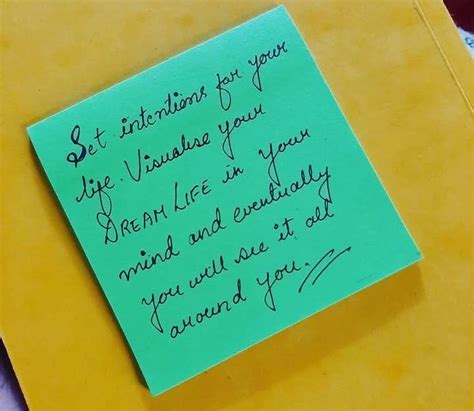 Set intentions for your
life. Visualise your
DREAM LIFE in your
mind and eventually
you will see it all
around you.